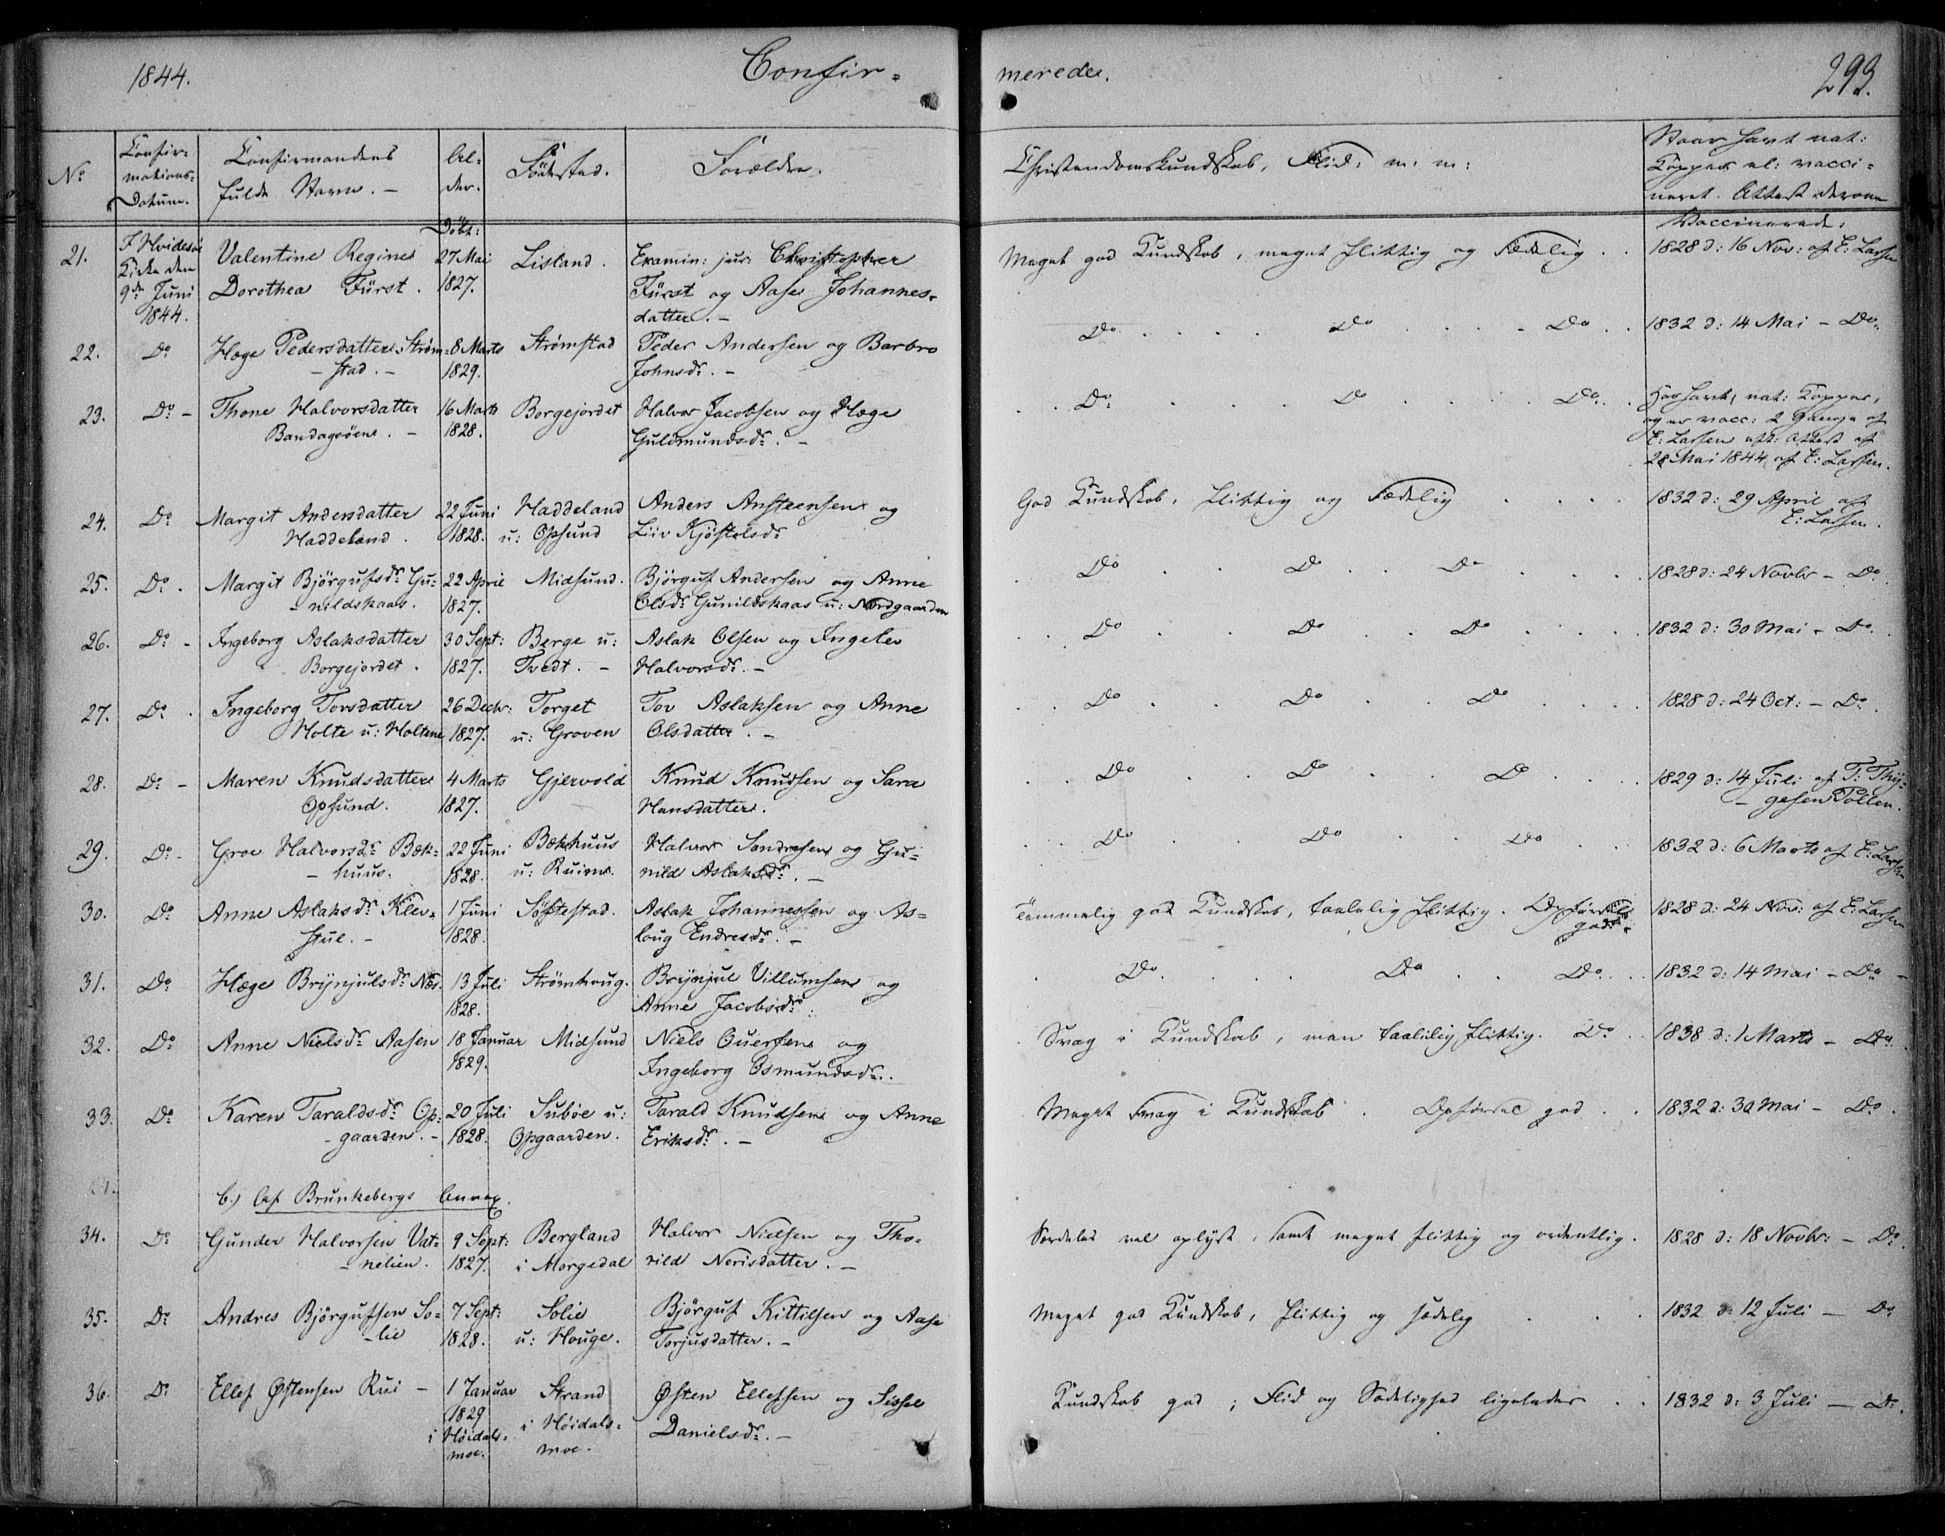 1844. Confir= meredes. 293.
No Confir=mations-Datum. Confirmandens fulde Navn. – Al=der. Födested. Forældre. Christendomskundskab, Flid: m: m: Naar havt nat: Kopper el: vacci=neret. Attest derom
Döbt: Vaccinerede:
21. I Hvidesöe Kirke den 9de Juni 1844. Valentine Regine Dorothea Fürst. 27 Mai 1827. Lisland. Examin: jur: Christopher Fürst og Aase Johannes=datter. – Meget god Kundskab, meget flittig og sædelig . . 1828 d: 16 Nov: af E: Larsen
22. Do Hæge Pedersdatter Ström=stad. – 8 Marts 1829. Strømstad Peder Andersen og Barbro Johnsdr. – Do . . . Do . . . Do . . 1832 d: 14 Mai – Do.
23. Do – Thone Halvorsdatter Bandagsöens. – 16 Marts 1828. Borgejordet Halvor Jacobsen og Hæge Guldmundsdr. – Do. . . Do . . Do. . Har havt, nat: Kopper, og er vacc: 2 Gange af E: Larsen efter Attest af 28 Mai 1844 af E: Larsen.
24. Do Margit Andersdatter Haddeland. 22 Juni 1828. Haddeland u: Opsund Anders Ansteensen og Liiv Kjöstelsdr God Kundskab, flittig og sædelig . . . . 1832 d: 29 April af E: Larsen.
25. Do. Margit Björgufsdr Gu=nildskaas. 22 April 1827. Midsund. Björguf Andersen og Anne Olsdr Gunildskaas u: Nordgaarden Do . . Do . . Do . . . 1828 d: 24 Novbr – Do.
26. Do – Ingeborg Aslaksdatter Borgejordet. 30 Sept: 1827. Berge u: Tvedt. – Aslak Olsen og Ingelev Halvorsdr. – Do . . Do . . Do . . . 1832 d: 30 Mai – Do.
27. Do. Ingeborg Torsdatter Holte u: Holtene 26 Decbr: 1827. Torget u: Groven Tov Aslaksen og Anne Olsdatter. – Do . . Do . . Do . . . 1828 d: 24 Oct: – Do.
28. Do – Maren Knudsdatter Opsund. 4 Marts 1827. Gjervold Knud Knudsen og Sara Hansdatter. Do . . Do . . Do . . 1829 d: 14 Juli af T: Thy=gesen Pollen.
29. Do – Groe Halvorsdr Bæk=huus. 22 Juni 1828. Bækhuus u: Ruiene. Halvor Sondresen og Gu=nild Aslaksdr. – Do . . Do . . Do . . 1832 d: 6 Marts af E: Larsen
30. Do Anne Aslaksdr Klev=stul. – 1 Juni 1828. Söftestad. Aslak Johannessen og As=loug Endresdr. – Temmelig god Kundskab, taalelig flittig. Opförsel god. 1828 d: 24 Nov: af E: Larsen
31. Do Hæge Brynjulsdr Næs. 13 Juli 1828. Strömhoug. Brynjul Villumsen og Anne Jacobsdr. . Do . . Do . . Do . . 1832 d: 14 Mai – Do –
32. Do Anne Nielsdr Aasen 18 Januar 1829. Midsund Niels Ouersen og Ingeborg Osmundsdr. . Svag i Kundskab, men taalelig flittig. Do . . 1838 d: 1 Marts – Do.
33. Do Karen Taraldsdr Op=gaarden. – 20 Juli 1828. Subøe u: Opgaarden. Tarald Knudsen og Anne Eriksdr. – Meget svag i Kundskab . Opförsel god . . 1832 d: 30 Mai – Do.
b.) Af Brunkebergs Annex.
34. Do Gunder Halvorsen Vat=nelien. 9 Sept: 1827. Bergland i Morgedal Halvor Nielsen og Tho=rild Nerisdatter. – Særdeles vel oplyst, samt meget flittig og ordentlig. 1828 d: 18 Novbr: – Do.
35. Do Andres Björgufsen So=lie 7 Sept: 1828. Solie u: Houge. Björguf Kittilsen og Aase Torjusdatter. – Meget god Kundskab, flittig og sædelig . . . 1832 d: 12 Juli – Do
36. Do Ellef Østensen Rui – 1 Januar 1829 i Høidals=moe. Strand i Høidals=moe. Østen Ellefsen og Sissel Danielsdr. – Kundskab god ; Flid og Sædelighed ligeledes . . 1832 d: 3 Juli – Do.